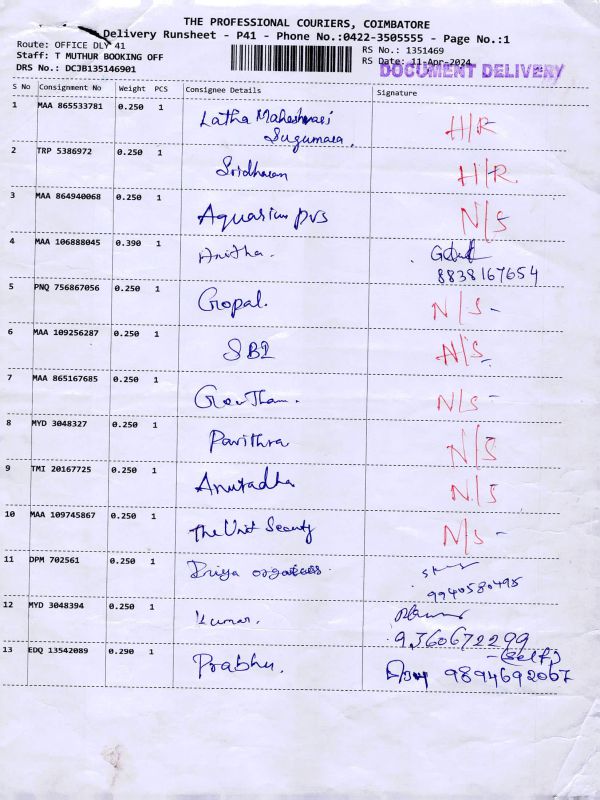 THE PROFESSIONAL COURIERS, COIMBATORE
Delivery Runsheet - P41 - Phone No.:0422-3505555 - Page No.:1
Route: OFFICE DLY 41
Staff: T MUTHUR BOOKING OFF
DRS No.: DCJB135146901
RS No.: 1351469
RS Date: 11-Apr-2024
DOCUMENT DELIVERY
S No Consignment No Weight PCS Consignee Details Signature
1 MAA 865533781 0.250 1 Latha Maheshwari H/R
Sugumara.
2 TRP 5386972 0.250 1 Sridharan H/R.
3 MAA 864940068 0.250 1 Aquarium pvs N/S
4 MAA 106888045 0.390 1 Anitha.
8838167654
5 PNQ 756867056 0.250 1 Gopal. N/S -
6 MAA 109256287 0.250 1 SBI N/S -
7 MAA 865167685 0.250 1 Gowtham. N/S -
8 MYD 3048327 0.250 1 Pavithra N/S
9 TMI 20167725 0.250 1 Anuradha N/S
10 MAA 109745867 0.250 1 The Unit Security N/S -
11 DPM 702561 0.250 1 Priya
9940580495
12 MYD 3048394 0.250 1 Kumar.
9360672299
- (self)
13 EDQ 13542089 0.290 1 Prabhu. 9894692067